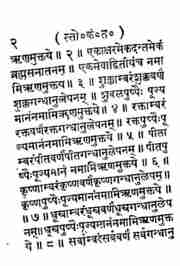 २ ( स्तो०कं०त० )
ऋणमुक्तये ॥ २ ॥ एकाक्षरमेकदन्तमेकं
ब्रह्मसनातनम् । एकमेवाद्वितीयंच नमा
मिऋणमुक्तये ॥ ३ ॥ शुक्लाम्बरंशुक्लवर्णं
शुक्लगन्धानुलेपनम् । शुक्लपुष्पैः पूज्य
मानंनमामिऋणमुक्तये ॥ ४ ॥ रक्ताम्बरं
रक्तवर्णंरक्तगन्धानुलेपनम् । रक्तपुष्पैःपू
ज्यमानंनमामिऋणमुक्तये ॥ ५ ॥ पीता
म्बरंपीतवर्णंपीतगन्धानुलेपनम् । पीतपु
ष्पैःपूज्यमानं नमामिऋणमुक्तये ॥ ६ ॥
कृष्णाम्बरंकृष्णवर्णंकृष्णगन्धानुलेपनम् ।
कृष्णपुष्पैःपूज्यमानंनमामिऋणमुक्तये
॥ ७ ॥ धूम्राम्बरंधूम्रवर्णंधूम्रगन्धानुलेप
नम् । धूम्रपुष्पैःपूज्यमानंनमामिऋणमुक्त
ये ॥ ८ ॥ सर्वाम्बरंसर्ववर्णं सर्वगन्धानु